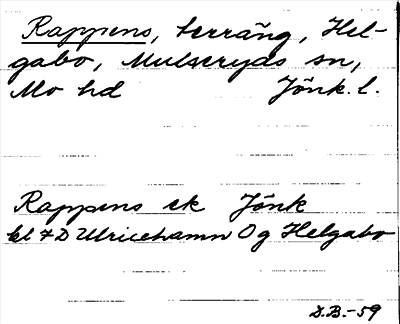 Rappens, terräng, Hel-
gabo, Mulseryds sn,
Mo hd Jönk. l.
Rappens ek Jönk
bl 7D Ulricehamn Og Helgabo
D.B.-59